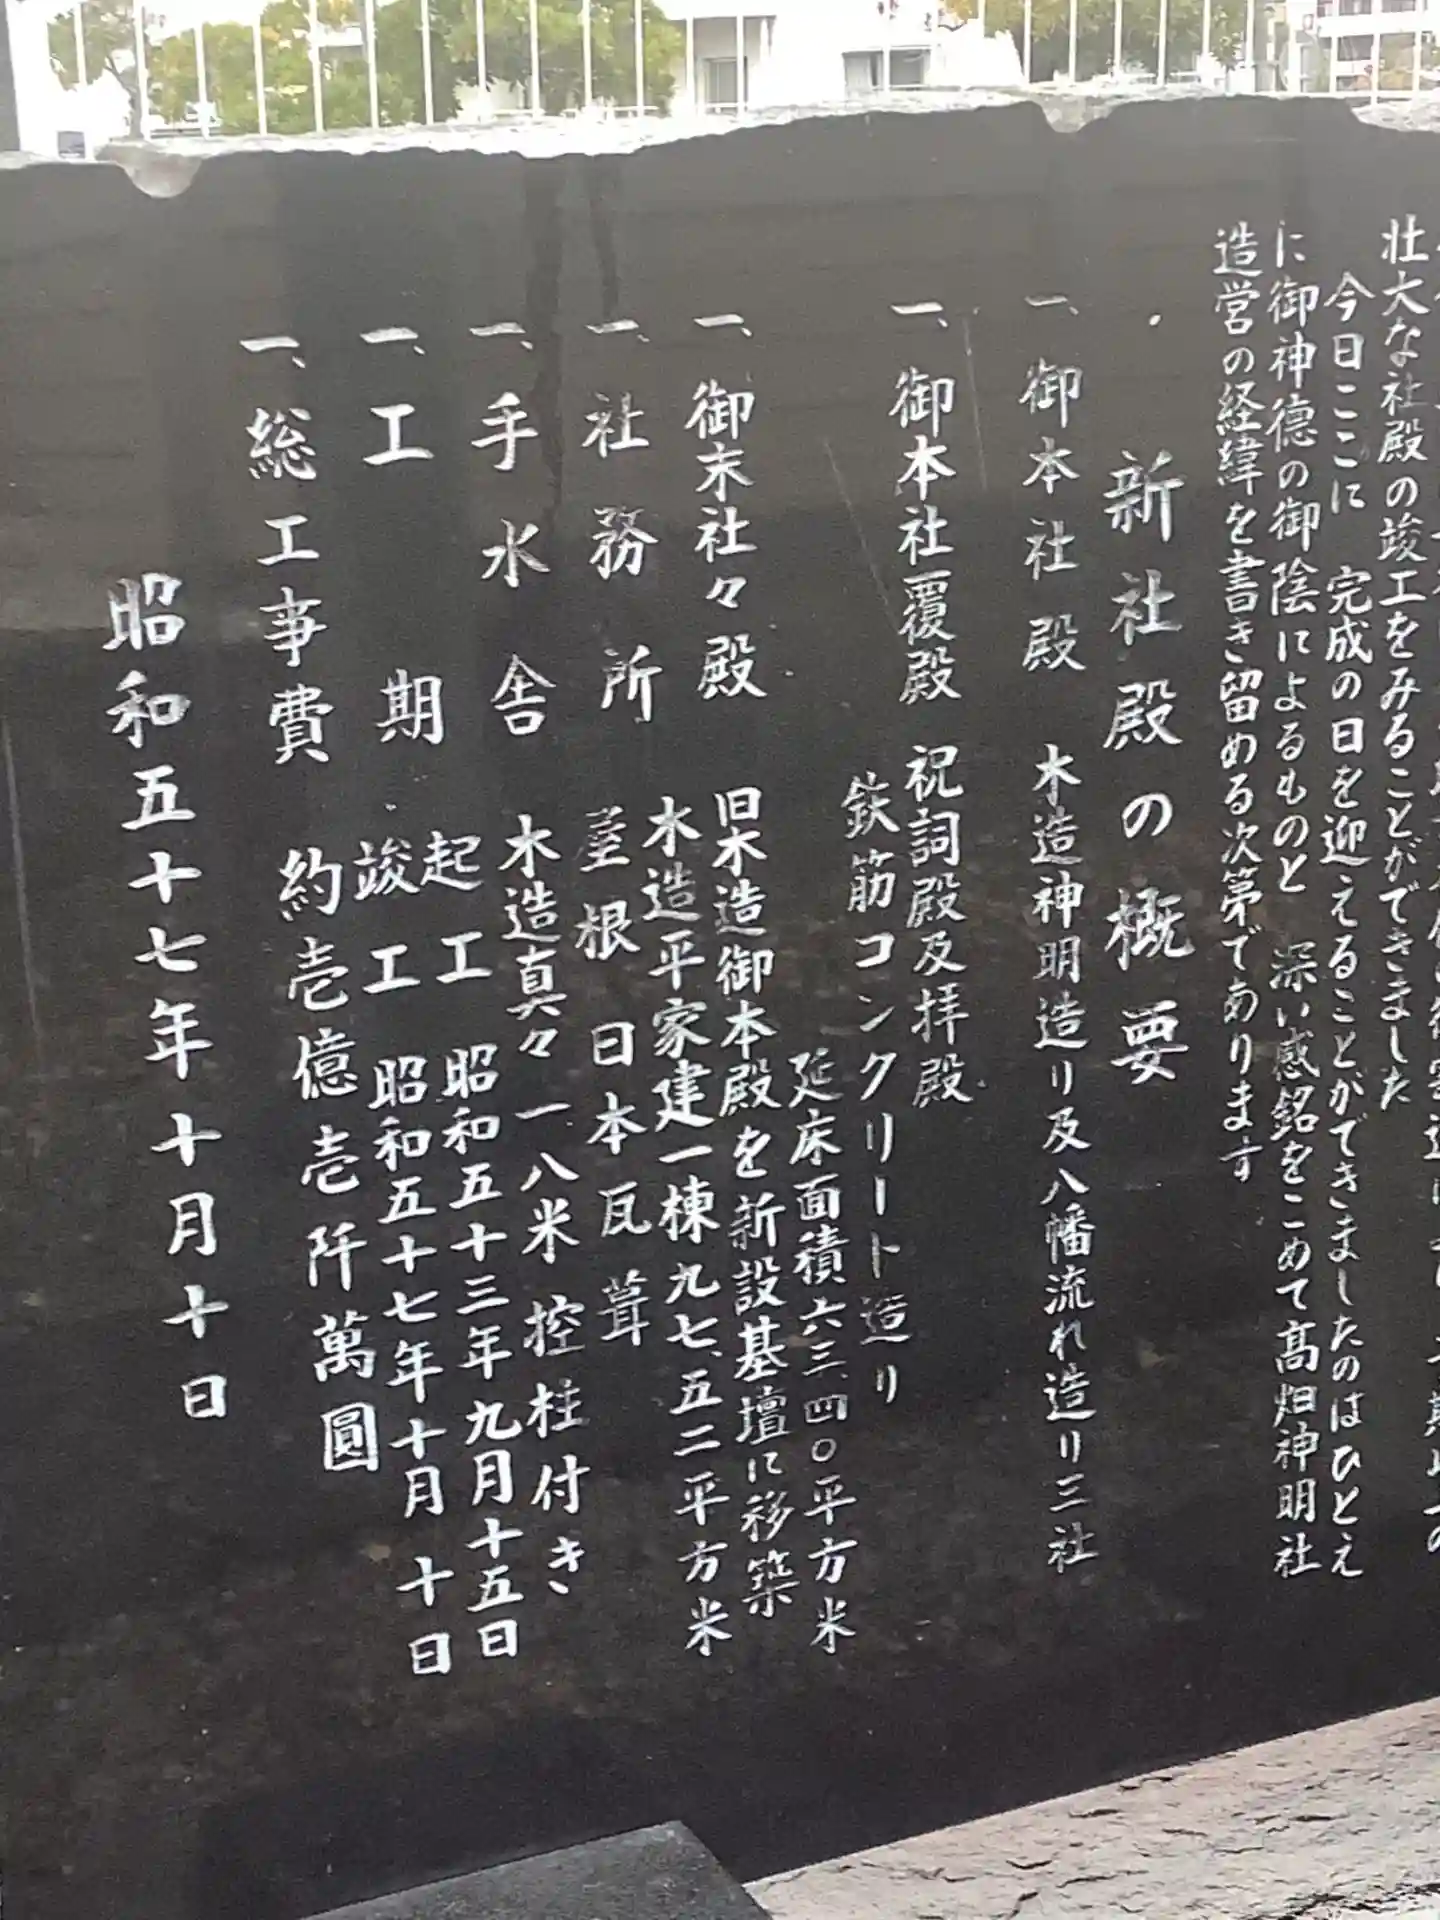 壮大な社殿の竣工をみることができました
今日ここに 完成の日を迎えることができましたのはひとえ
に御神徳の御陰によるものと 深い感銘をこめて髙畑神明社
造営の経緯を書き留める次第であります
・新社殿の概要
一、御本社殿 木造神明造り及八幡流れ造り三社
一、御本社覆殿 祝詞殿及拝殿
鉄筋コンクリート造り
延床面積六三.四〇平方米
一、御末社々殿 旧木造御本殿を新設基壇に移築
一、社務所 木造平家建一棟九七.五二平方米
屋根日本瓦葺
一、手水舎 木造真々一.八米 控柱付き
一、工期 起工 昭和五十三年九月十五日
竣工 昭和五十七年十月十日
一、総工事費 約壱億壱阡萬圓
昭和五十七年十月十日